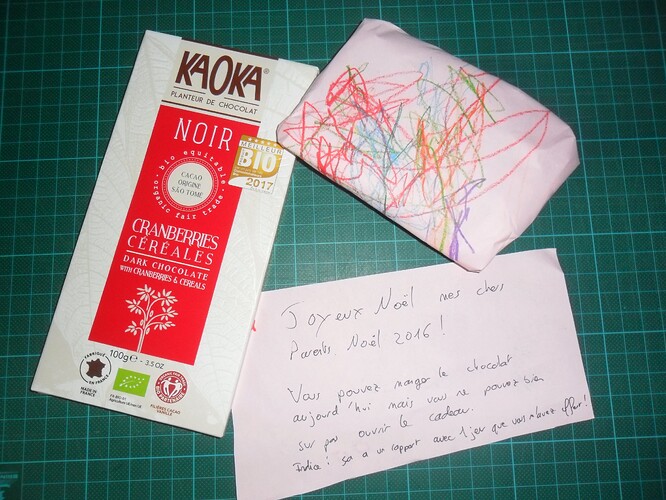 KAOKA®
PLANTEUR DE CHOCOLAT
NOIR
MEILLEUR
BIO
2017
bio équitable
CACAO
ORIGINE
SÃO TOMÉ
organic fair trade
CRANBERRIES
CÉRÉALES
DARK CHOCOLATE
WITH CRANBERRIES & CEREALS
100g e - 3.5 OZ
FABRIQUÉ
EN FRANCE
MADE IN
FRANCE
FR-BIO-01
FILIÈRES CACAO
VANILLE
Joyeux Noël mes chers
Parents. Noël 2016!
Vous pouvez manger le chocolat
aujourd'hui mais vous ne pouvez bien
sur pas ouvrir le cadeau.
Indice: ça a un rapport avec 1 jeu que vous m'avez offert!